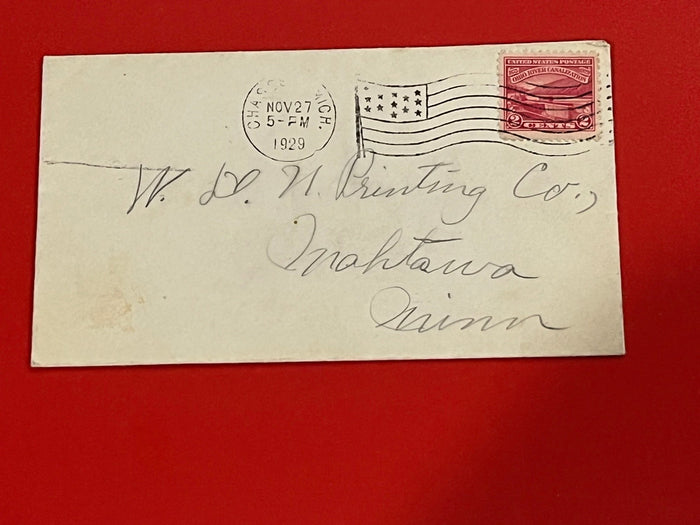 NOV 27
5-PM
1929
MICH.
UNITED STATES POSTAGE
OHIO RIVER CANALIZATION
2 CENTS 2
W. D. N. Printing Co.,
Mahtowa
Minn